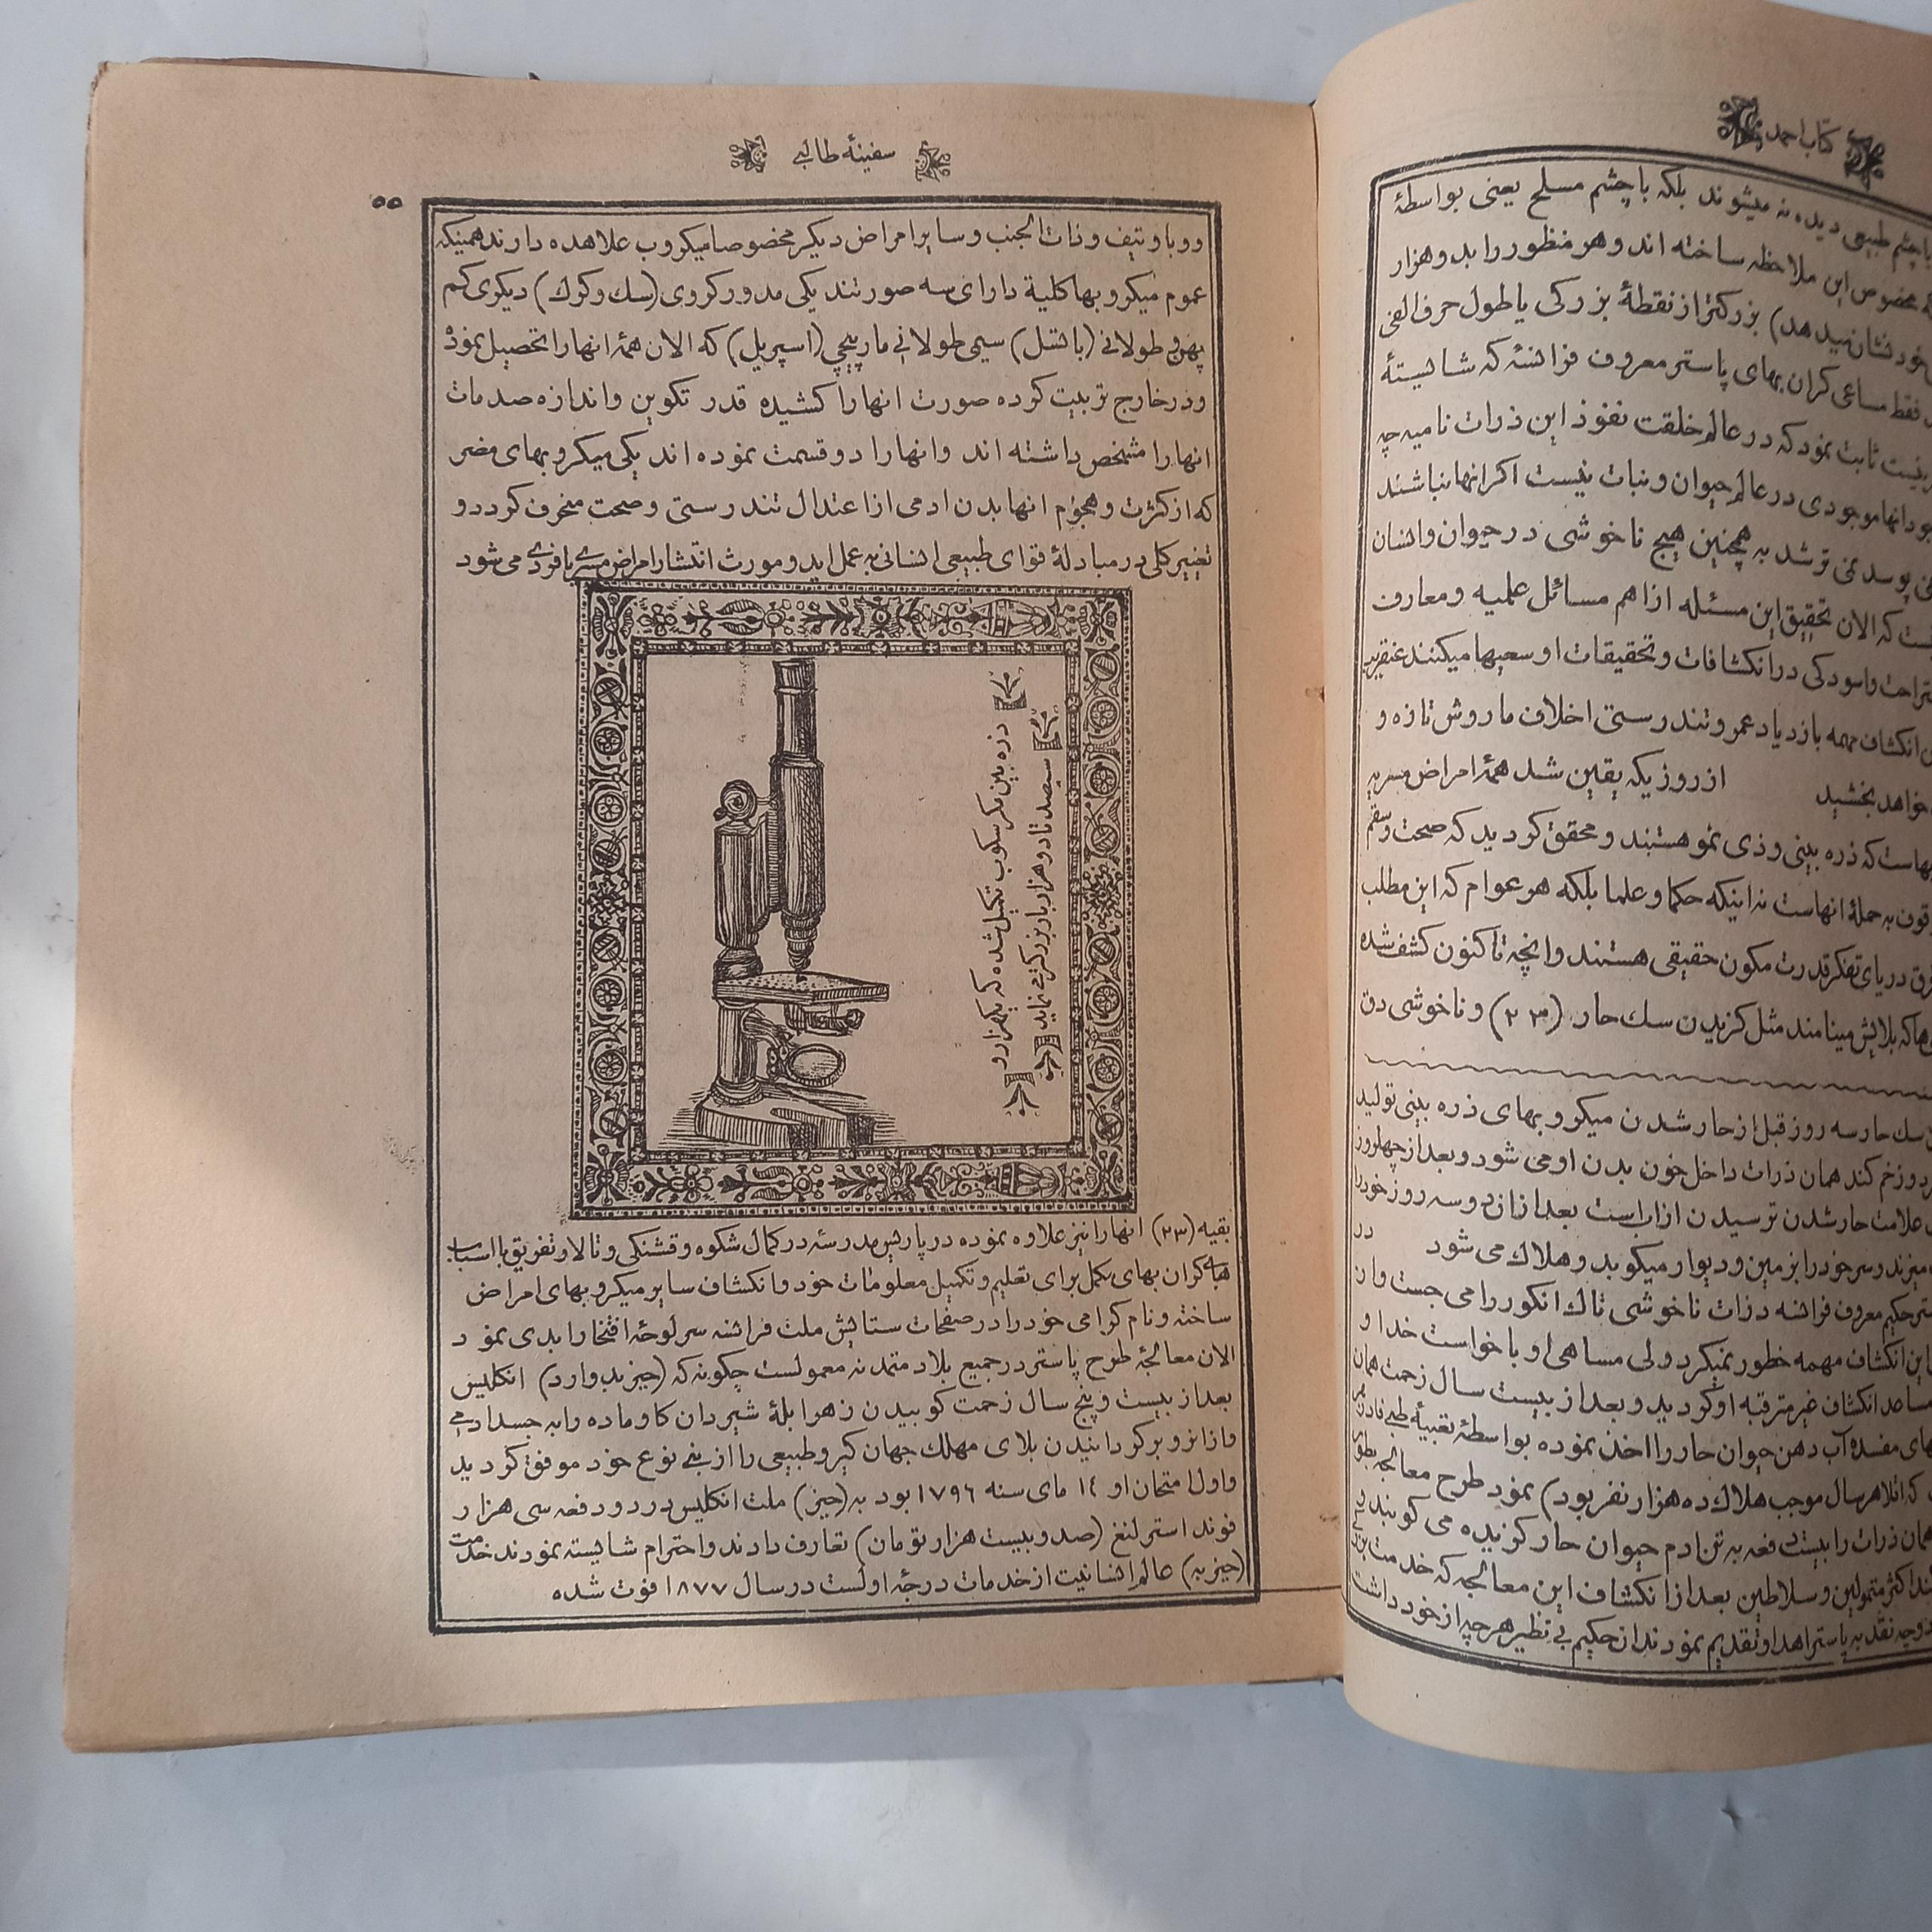 کتاب احمد
با چشم طبیعی دیده نه میشوند بلکه با چشم مسلح یعنی بواسطهٔ
مخصوص این ملاحظه ساخته اند و هر منظور را بد و هزار
خود نشان میدهد) بزرکتر از نقطهٔ بزرکی یا طول حرف الفی
فقط مساعی کران بهای پاستر معروف فرانسه که شایستهٔ
ثابت نمود که در عالم خلقت نفوذ این ذرات نامیه چه
انها موجودی در عالم حیوان و نبات نیست اکر انها نباشند
پوسد نمی ترشد به همچنین هیچ ناخوشی در حیوان و انسان
که الان تحقیق این مسئله از اهم مسائل علمیه و معارف
واسودکی در انکشافات و تحقیقات او سعیها میکنند عنقریب
انکشاف مهمه بازدیاد عمر و تندرستی اخلاف ما روش تازه و
خواهد بخشید از روزیکه یقین شد همهٔ امراض مسریه
که ذره بینی و ذی نمو هستند و محقق کردید که صحت و سقم
به حملهٔ انهاست نه اینکه حکما و علما بلکه هر عوام که این مطلب
دریای تفکر قدرت مکون حقیقی هستند وانچه تاکنون کشف شده
که بلایش مینامند مثل کزیدن سك حار (۲۳) و ناخوشی دق
سك حار سه روز قبل از حار شدن میکروبهای ذره بینی تولید
زخم کند همان ذرات داخل خون بدن او می شود و بعد از چهلروز
علامت حار شدن ترسیدن از اب است بعد از ان دو سه روز خود را
میزند و سر خود را بزمین و دیوار میکوبد و هلاك می شود در
حکیم معروف فرانسه ذرات ناخوشی تاك انکور را می جست و ان
این انکشاف مهمه خطور نمیکرد ولی مساعی او با خواست خدا و
مساعد انکشاف غیر مترقبه او کردید و بعد از بیست سال زحمت همان
مفسدهٔ آب دهن حیوان حار را اخذ نموده بواسطهٔ تعبیهٔ طبی
که اقلا هر سال موجب هلاك ده هزار نفر بود) نمود طرح معالجه بطور
همان ذرات را بیست دفعه به تن ادم حیوان حار کزیده می کوبند و
اکثر متمولین و سلاطین بعد از انکشاف این معالجه که خدمت
نقد به پاستر اهدا و تقدیم نمودند ان حکیم بی نظیر هر چه از خود داشت
سفینهٔ طالبی
٥٥
و وبا و تیف و ذات الجنب و سایر امراض دیکر مخصوصا میکروب علاهده دارند همینکه
عموم میکروبها کلیة دارای سه صورتند یکی مدور کروی (سك وکوك) دیکری کم
پهن و طولانی (باتسل) سیمی طولانی مارپیچی (اسپریل) که الان همهٔ انها را تحصیل نموده
و در خارج تربیت کرده صورت انها را کشیده قدر تکوین و اندازه صدمات
انها را مشخص داشته اند و انها را دو قسمت نموده اند یکی میکروبهای مضر
که از کثرت و هجوم انها بدن ادمی از اعتدال تندرستی و صحت منحرف کردد و
تغییر کلی در مبادلهٔ قوای طبیعی انسانی به عمل اید و مورث انتشار امراض مسری یا فردی می شود
ذره بین مکرسکوب تکمیل شده که یکهزار و
سیصد تا دو هزار بار بزرکتر می نماید
بقیه (۲۳) انها را نیز علاوه نموده در پاریس مدرسهٔ در کمال شکوه و قشنکی و تالار و تفریق با اسباب
های کران بهای مکمل برای تعلیم و تکمیل معلومات خود و انکشاف سایر میکروبهای امراض
ساخته و نام کرامی خود را در صفحات ستایش ملت فرانسه سر لوحهٔ افتخار ابدی نمود
الان معالجهٔ طرح پاستر در جمیع بلاد متمدنه معمولست چکونه که (جیز ندوارد) انکلیس
بعد از بیست و پنج سال زحمت کوبیدن زهر ابلهٔ شیردان کاو ماده را به جسد ادمی
و از انرو برکردانیدن بلای مهلك جهان کیر و طبیعی را از بنی نوع خود موفق کردید
و اول امتحان او ١٤ مای سنه ١٧٩٦ بود به (جیز) ملت انکلیس در دو دفعه سی هزار
فوند استرلنغ (صد و بیست هزار تومان) تعارف دادند و احترام شایسته نمودند خدمت
(جیز به) عالم انسانیت از خدمات درجهٔ اولست در سال ١٨٧٧ فوت شده